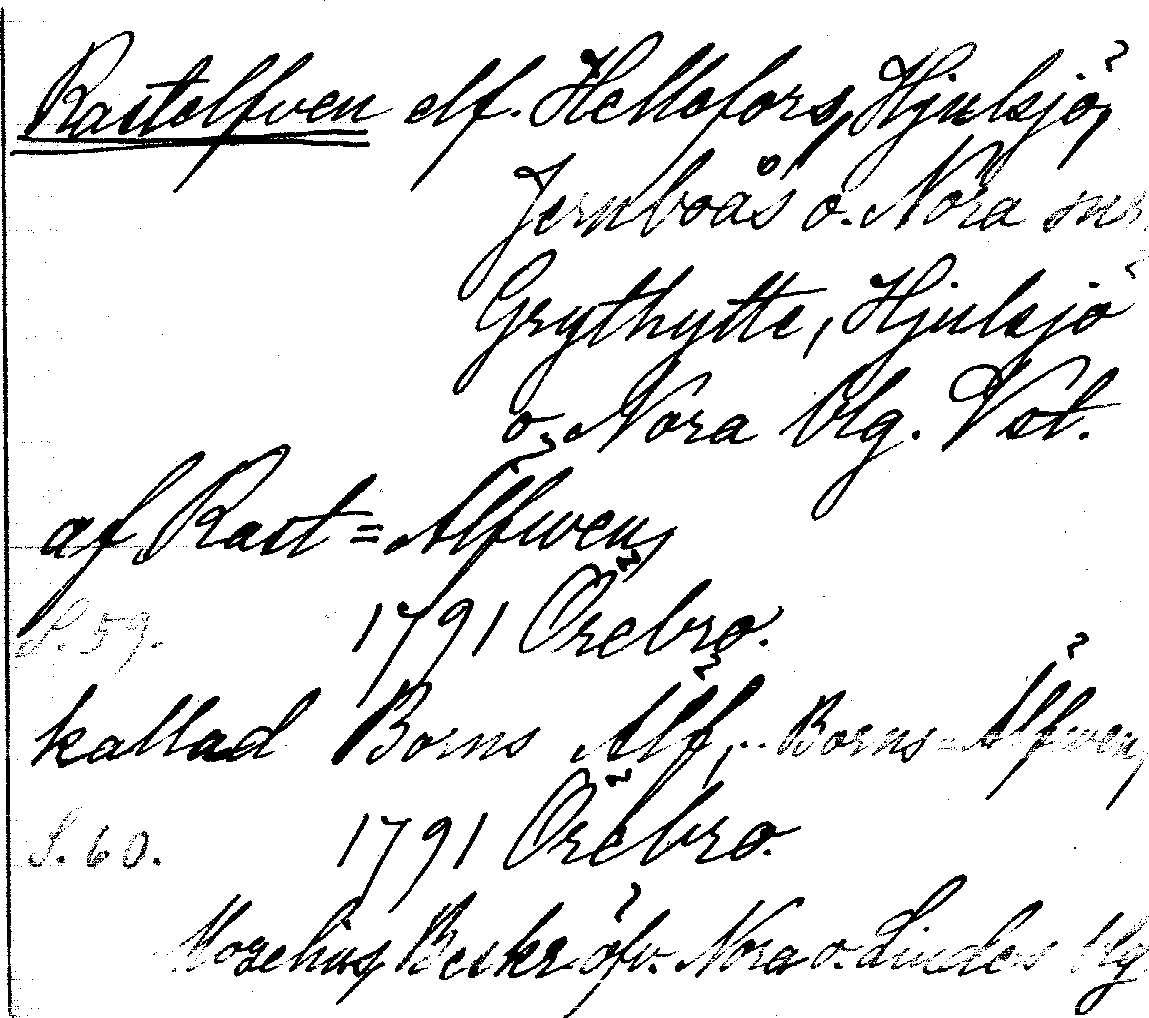 Rastelfven elf. Hellefors, Hjulsjö,
Jernboås o. Nora snr.
Grythytte, Hjulsjö
o. Nora blg. Vst.
af Rast=Älfwen,
S. 59. 1791 Örebro.
kallad Borns Älf, Borns=Älfwen,
S. 60. 1791 Örebro.
Beskr. öfv. Nora o. Lindes blg